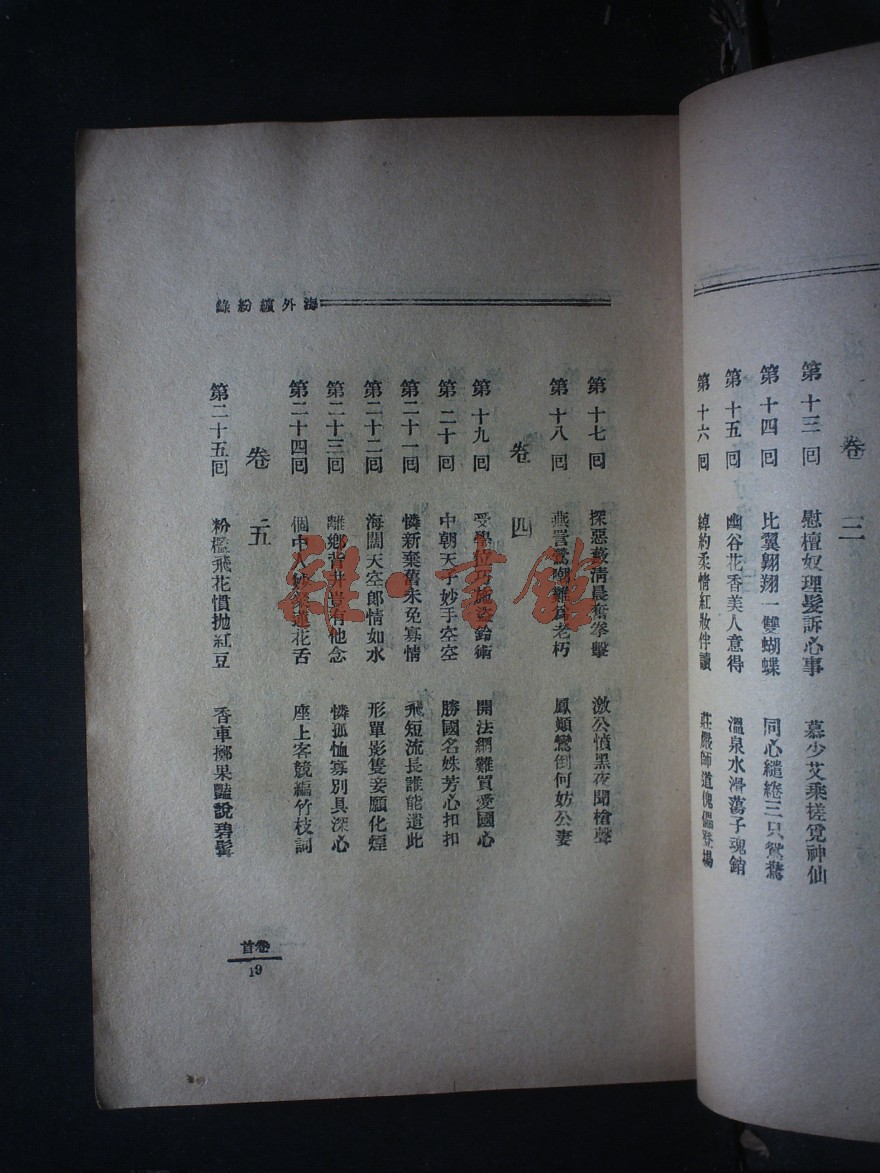 卷三
第十三回 慰檀奴理髮訴心事 慕少艾乘槎覓神仙
第十四回 比翼翺翔一雙蝴蝶 同心繾綣三只鴛鴦
第十五回 幽谷花香美人意得 溫泉水滑蕩子魂銷
第十六回 綽約柔情紅妝伴讀 莊嚴師道傀儡登場
海外繽紛錄
第十七回 探惡薮清晨奮拳擊 激公憤黑夜聞槍聲
第十八回 燕詈鶯嘲難爲老朽 鳳顚鸞倒何妨公妻
卷四
第十九回 受學位巧施盜鈴術 開法網難質愛國心
第二十回 中朝天子妙手空空 勝國名姝芳心扣扣
第二十一回 憐新棄舊未免寡情 飛短流長誰能遣此
第二十二回 海闊天空郎情如水 形單影隻妾願化煙
第二十三回 離鄕背井豈有他念 憐孤恤寡別具深心
第二十四回 個中人妙粲蓮花舌 座上客競編竹枝詞
卷五
第二十五回 粉檻飛花慣抛紅豆 香車擲果豔說碧髯
卷首
19
雜·書館